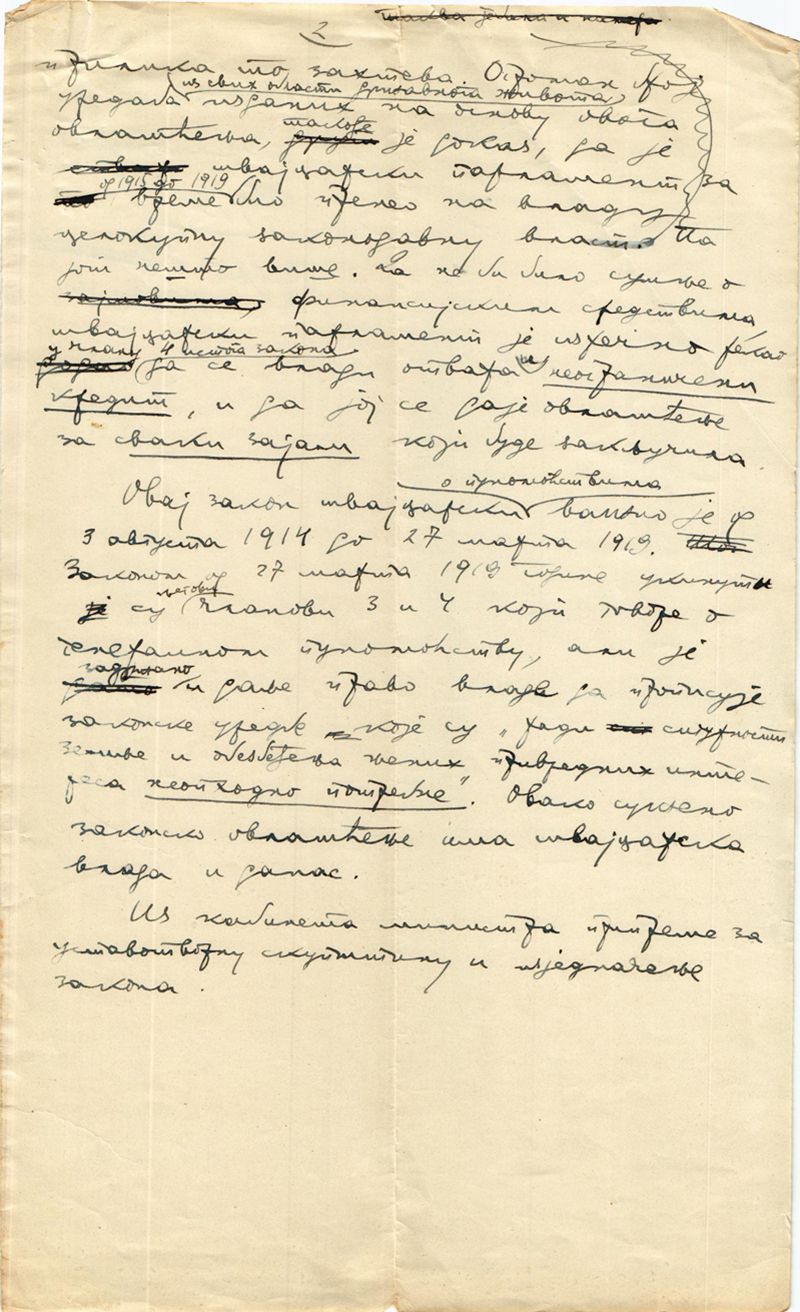 2
прилика то захтева. Огроман број
из свих области државнога живота
уредаба изданих на основу овога
такође
овлашћења, је доказ, да је
швајцарски парламент за
од 1915 до 1919
време био пренео на владу
целокупну законодавну власт. Па
још нешто више. Да не би било сумње о
зајмовима, финансијским средствима,
швајцарски парламент је изречно рекао
у члану 4 истога закона
да се влади отвара неограничени
кредит, и да јој се даје овлашћење
за сваки зајам који буде закључила.
о пуномоћствима
Овај закон швајцарски важио је од
3 августа 1914 до 27 марта 1919.
Законом од 27 марта 1919 године укинути
његови
су чланови 3 и 4 који говоре о
генералном пуномоћству, али је
задржано
и даље право владе да прописује
законске уредбе које су „ради сигурности
земље и обезбеђења њених привредних инте-
реса неопходно потребне". Овако сужено
законско овлашћење има швајцарска
влада и данас.
Из кабинета министра припреме за
уставотворну скупштину и изједначење
закона.